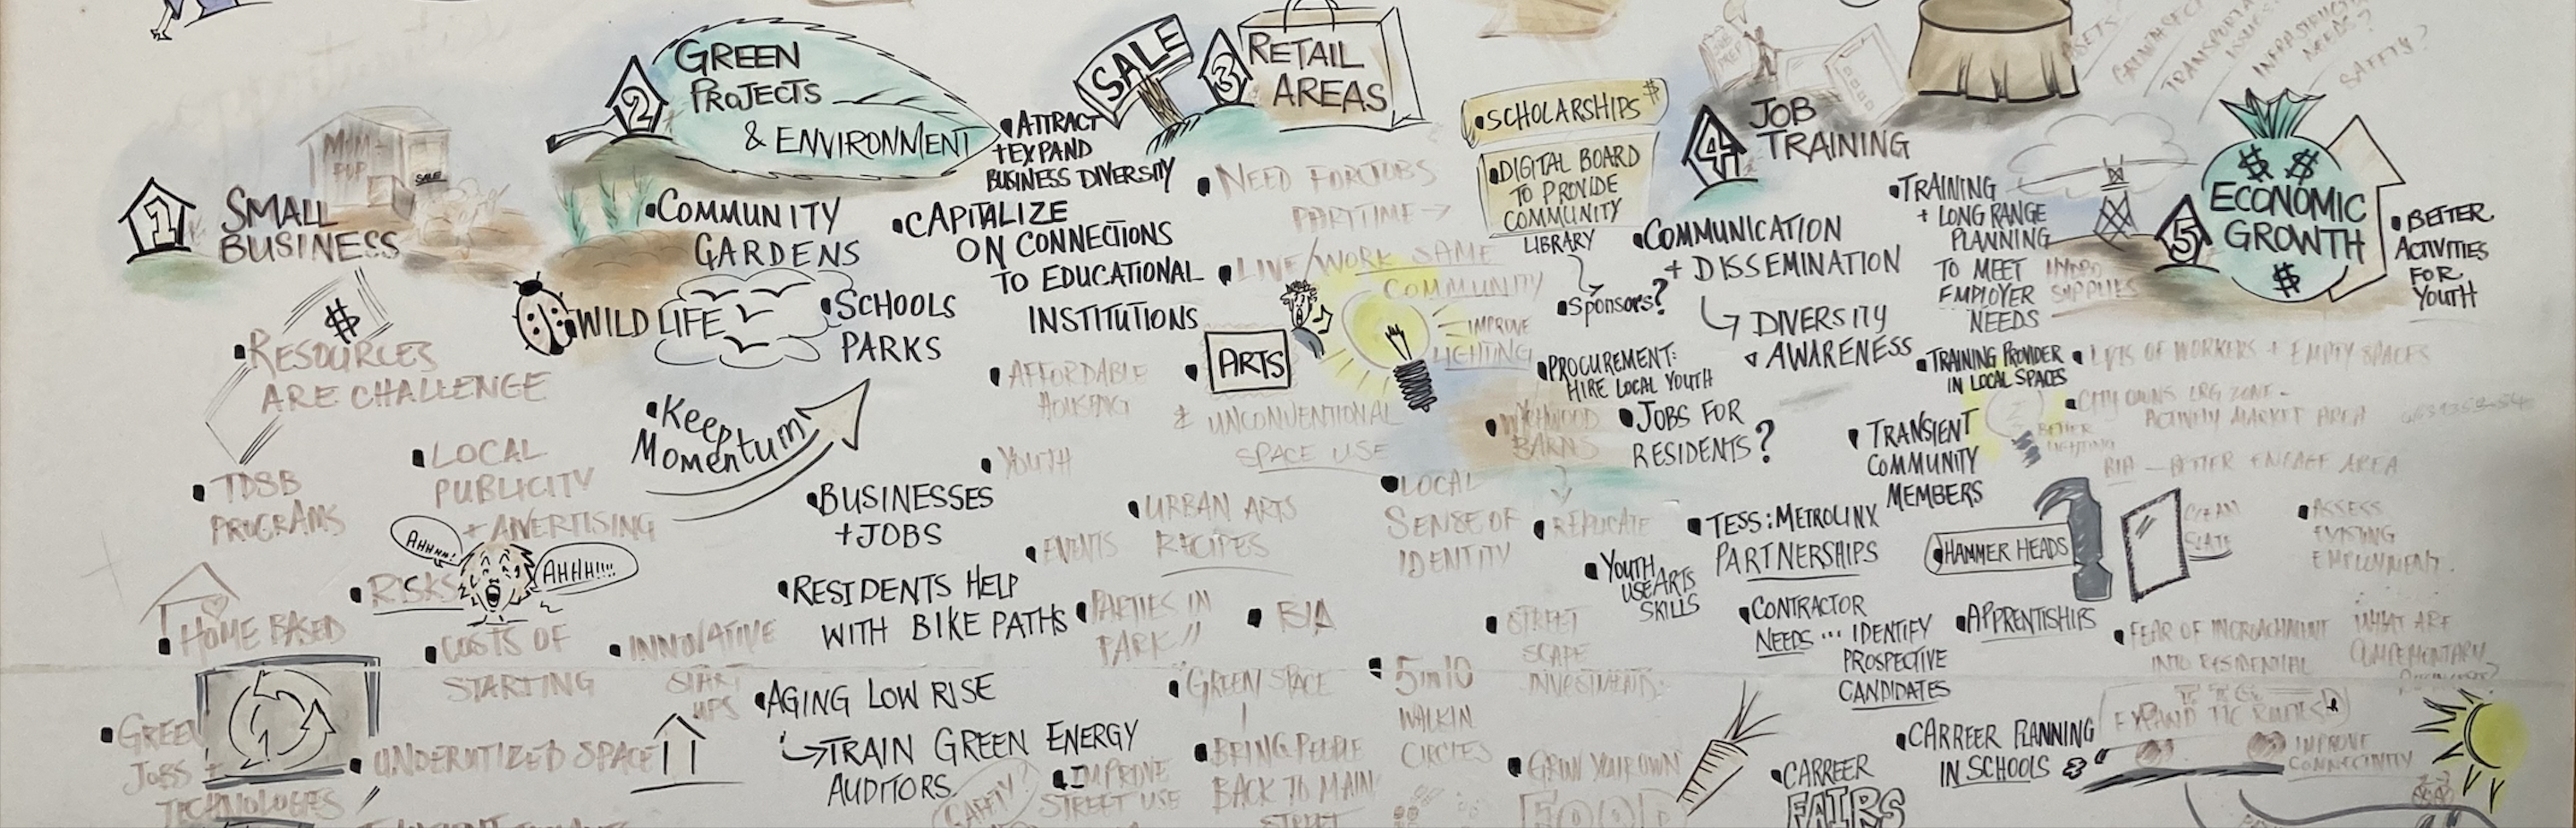 1
SMALL
BUSINESS
MOM-
POP
SALE
$
RESOURCES
ARE CHALLENGE
TDSB
PROGRAMS
LOCAL
PUBLICITY
+ ADVERTISING
AHHHH!
AHHH!!!!
RISKS
HOME BASED
COSTS OF
STARTING
INNOVATIVE
START
UPS
GREEN
JOBS +
TECHNOLOGIES
UNDERUTILIZED SPACE
2
GREEN
PROJECTS
& ENVIRONMENT
COMMUNITY
GARDENS
WILDLIFE
SCHOOLS
PARKS
KEEP
MOMENTUM
BUSINESSES
+ JOBS
RESIDENTS HELP
WITH BIKE PATHS
AGING LOW RISE
TRAIN GREEN ENERGY
AUDITORS
SALE
3
RETAIL
AREAS
ATTRACT
+ EXPAND
BUSINESS DIVERSITY
CAPITALIZE
ON CONNECTIONS
TO EDUCATIONAL
INSTITUTIONS
NEED FOR JOBS
PARTTIME
LIVE/WORK SAME
COMMUNITY
IMPROVE
LIGHTING
ARTS
& UNCONVENTIONAL
SPACE USE
AFFORDABLE
HOUSING
YOUTH
EVENTS
URBAN ARTS
RECIPES
PARTIES IN
PARK!!
BIA
GREEN SPACE
BRING PEOPLE
BACK TO MAIN
STREET
SAFETY?
IMPROVE
STREET USE
LOCAL
SENSE OF
IDENTITY
5 in 10
WALKIN
CIRCLES
WYCHWOOD
BARNS
REPLICATE
STREET
SCAPE
INVESTMENTS
GROW YOUR OWN
FOOD
SCHOLARSHIPS $
DIGITAL BOARD
TO PROVIDE
COMMUNITY
LIBRARY
SPONSORS?
4
JOB
TRAINING
COMMUNICATION
+ DISSEMINATION
DIVERSITY
AWARENESS
PROCUREMENT:
HIRE LOCAL YOUTH
JOBS FOR
RESIDENTS?
YOUTH
USE ARTS
SKILLS
TESS: METROLINX
PARTNERSHIPS
CONTRACTOR
NEEDS ... IDENTIFY
PROSPECTIVE
CANDIDATES
TRAINING
+ LONG RANGE
PLANNING
TO MEET
EMPLOYER
NEEDS
TRAINING PROVIDER
IN LOCAL SPACES
TRANSIENT
COMMUNITY
MEMBERS
HAMMER HEADS
APPRENTISHIPS
CARREER PLANNING
IN SCHOOLS
CARREER
FAIRS
ASSETS?
GROWTH SECT
TRANSPORTA
ISSUES
INFRASTRUCTU
NEEDS?
SAFETY?
5
$ $
ECONOMIC
GROWTH
$
BETTER
ACTIVITIES
FOR
YOUTH
HYDRO
SUPPLIES
LOTS OF WORKERS + EMPTY SPACES
CITY OWNS LRG ZONE -
ACTIVELY MARKET AREA
BETTER
LIGHTING
BIA - BETTER ENGAGE AREA
CLEAN
SLATE
ASSESS
EXISTING
EMPLOYMENT
FEAR OF INCROACHMENT
INTO RESIDENTIAL
WHAT ARE
COMPLEMENTARY
EXPAND TTC ROUTES
IMPROVE
CONNECTIVITY